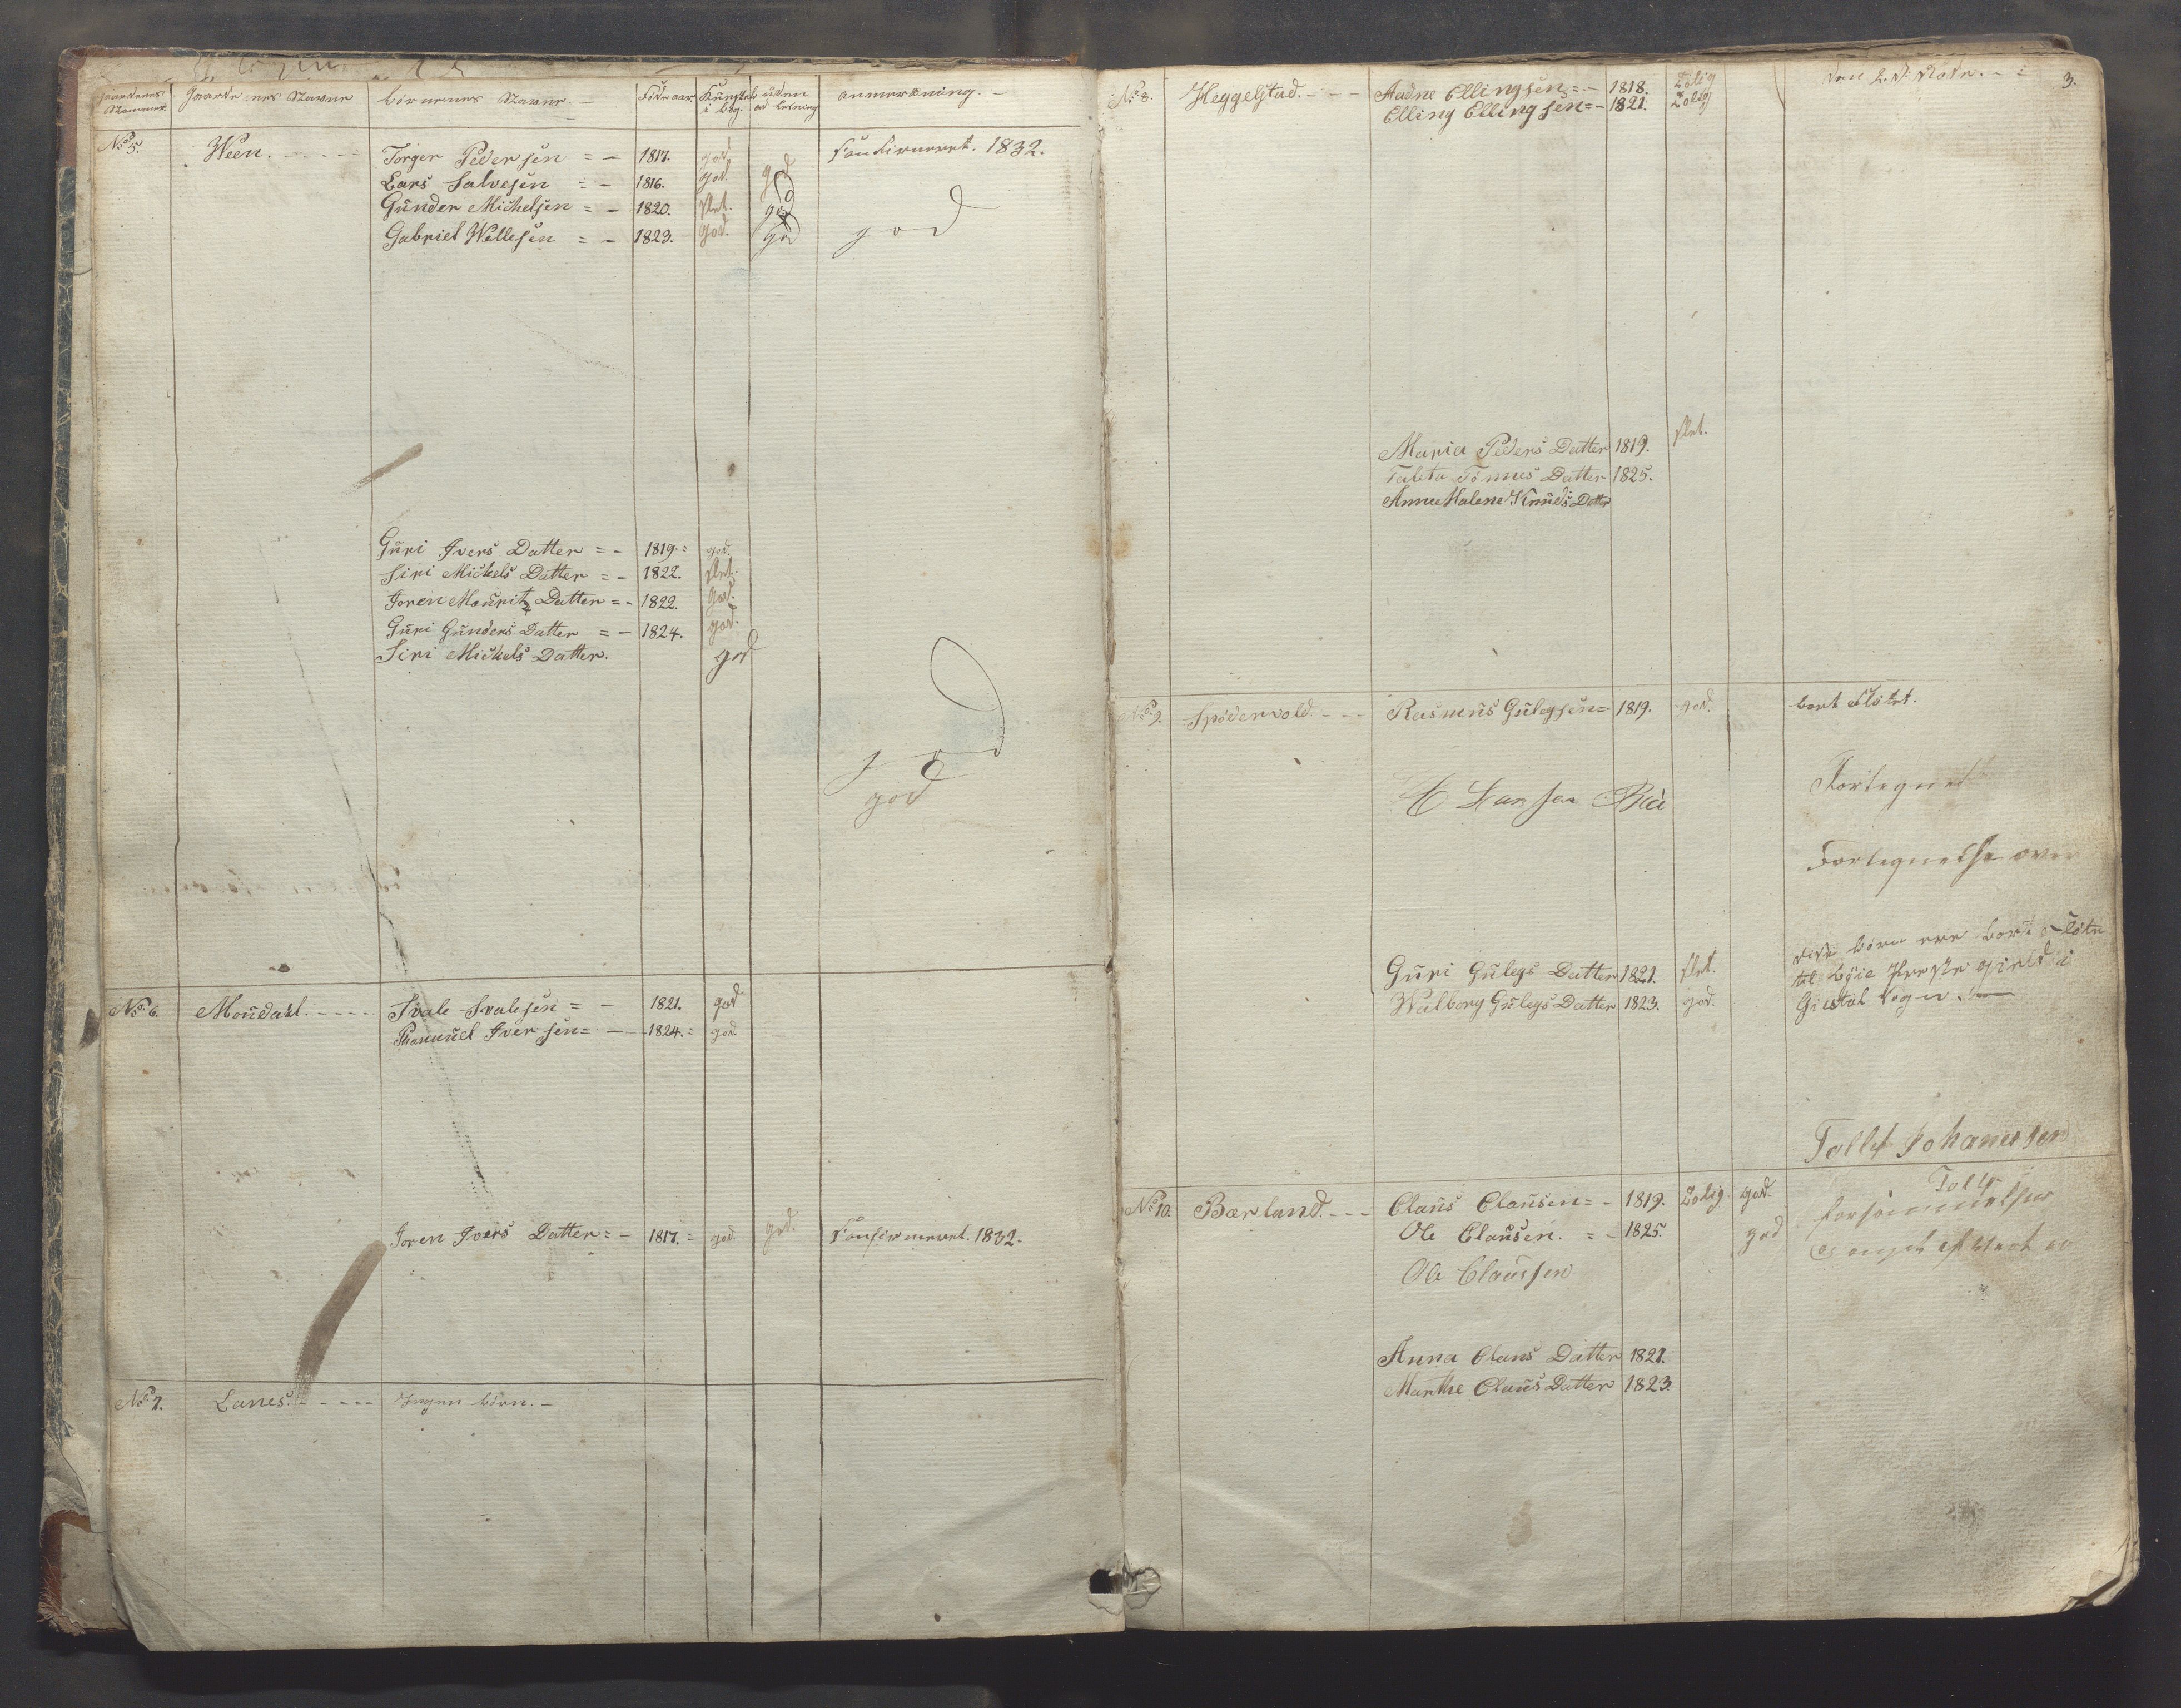 Gaardenes Nummer Gaardenes Navne Børnenes Navne Føde aar Kundskab i bog uden ad Læsning anmerkning.
No 5. Ween. Torger Pedersen 1817. god. god Confirmeret. 1832.
Lars Salvesen 1816. god.
Gunder Michelsen 1820. slet. god
Gabriel Willesen 1823. god. god god
Guri Ivers Datter 1819. god.
Siri Michels Datter 1822. slet.
Joren Mouritz Datter 1822. god.
Guri Gunders Datter 1824. god.
Siri Michels Datter. god
god
god
No 6. Moudahl. Svale Svalesen 1821. god
Thamuel Iversen 1824. god.
Joren Ivers Datter 1817. god. god. Confirmeret. 1832.
No 7. Lanes. Ingen børn.
3.
No 8. Heggelstad. Aadne Ellingsen 1818. Zolig
Elling Ellingsen 1821. Zolig
Maria Peders Datter 1819. slet.
Tabeta Tønnes Datter 1825.
Anne Malene Knuds Datter
No 9. Spødervold. Rasmus Gulegsen 1819. god. bort fløtet.
Fortegnels
Larsen
Fortegnelse over
Guri Gulegs Datter 1821. slet.
Walborg Gulegs Datter 1823. god.
disse børn ere bort fløtte
til Høie Præste gield i
Giestal Sogn
Tollef Johannesen
No 10. Bærland. Claus Clausen 1819. Zolig. god.
Toll
Ole Clausen. 1825. god
forsømmelser
Ole Claussen
Anna Claus Datter 1821.
Marthe Claus Datter 1823.